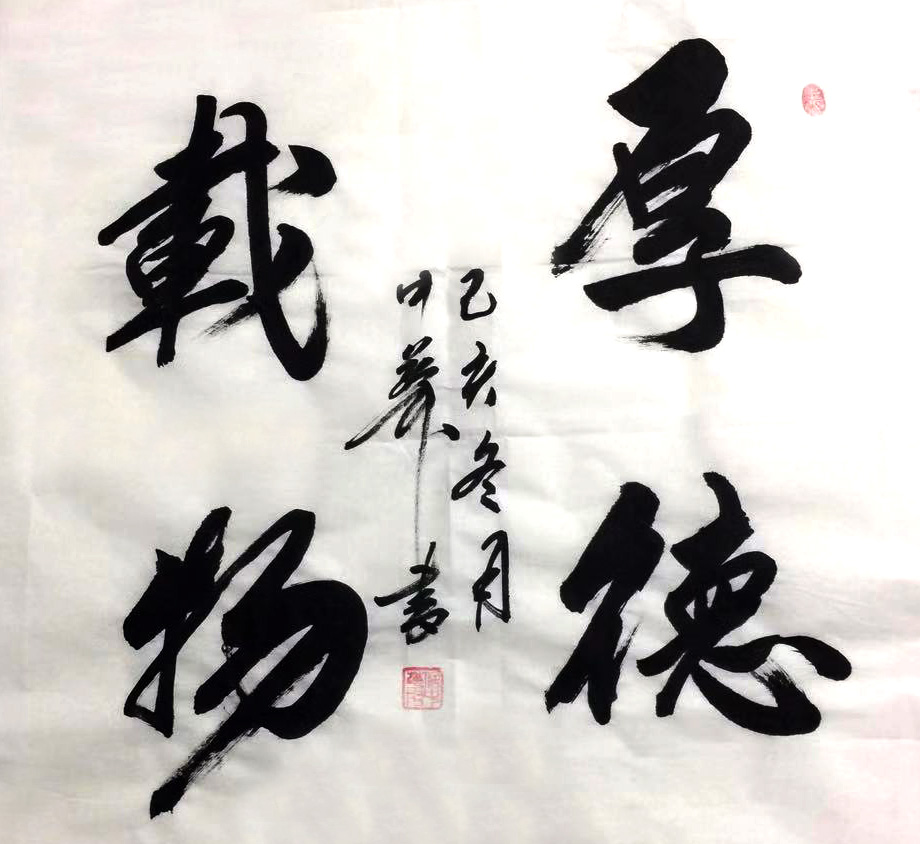 厚德
載物
己亥冬月
中華書